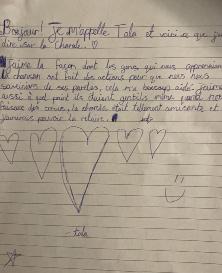 Bonjour! Je m'appelle Tala et voici ce que j'
dire sur la Chorale. ♡
J'aime la façon dont les gens qui nous apprenaient
la chanson ont fait des actions pour que nous nous
souvenions de ses parties, cela m'a beaucoup aidé. J'aime
aussi à quel point ils étaient gentils même quand nous
faisions des erreurs, la chorale était tellement amusante et
pouvoir la refaire.
-tala